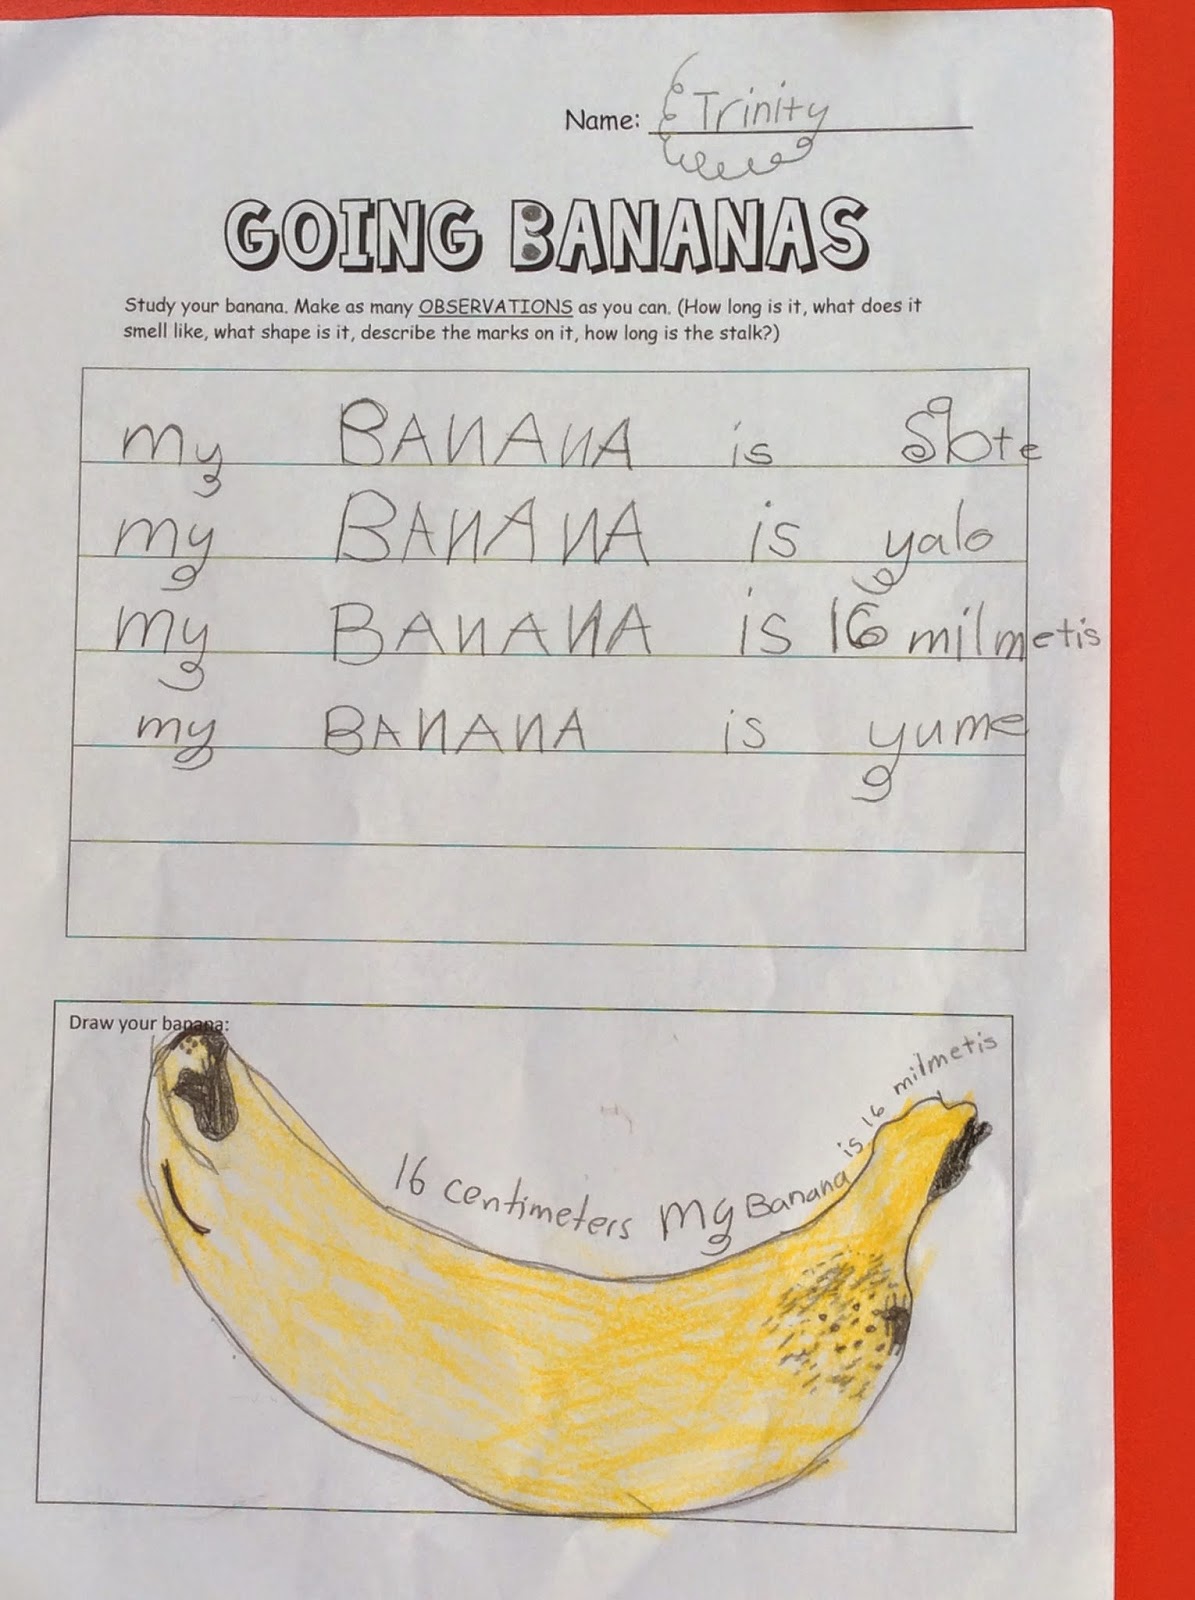 Name: Trinity
GOING BANANAS
Study your banana. Make as many OBSERVATIONS as you can. (How long is it, what does it
smell like, what shape is it, describe the marks on it, how long is the stalk?)
my BANANA is Sbte
my BANANA is yalo
my BANANA is 16 milmetis
my BANANA is yume
Draw your banana:
16 centimeters my Banana is 16 milmetis